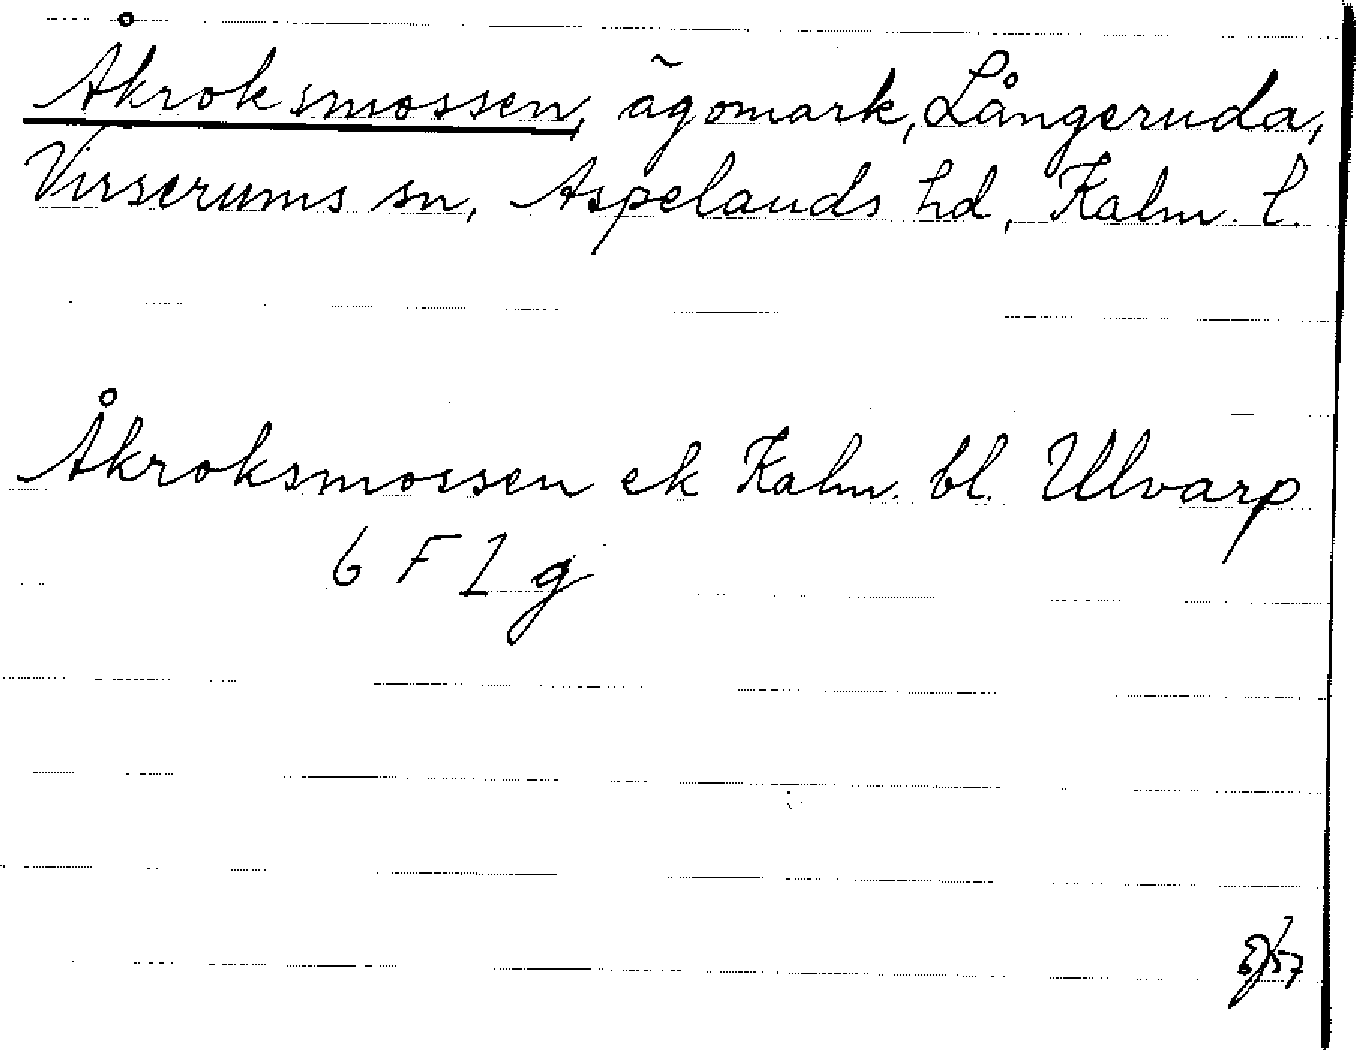 Åkroksmossen, ägomark, Långeruda,
Virserums sn, Aspelands hd, Kalm. l.
Åkroksmossen ek Kalm. bl. Ulvarp
6 F 1 g